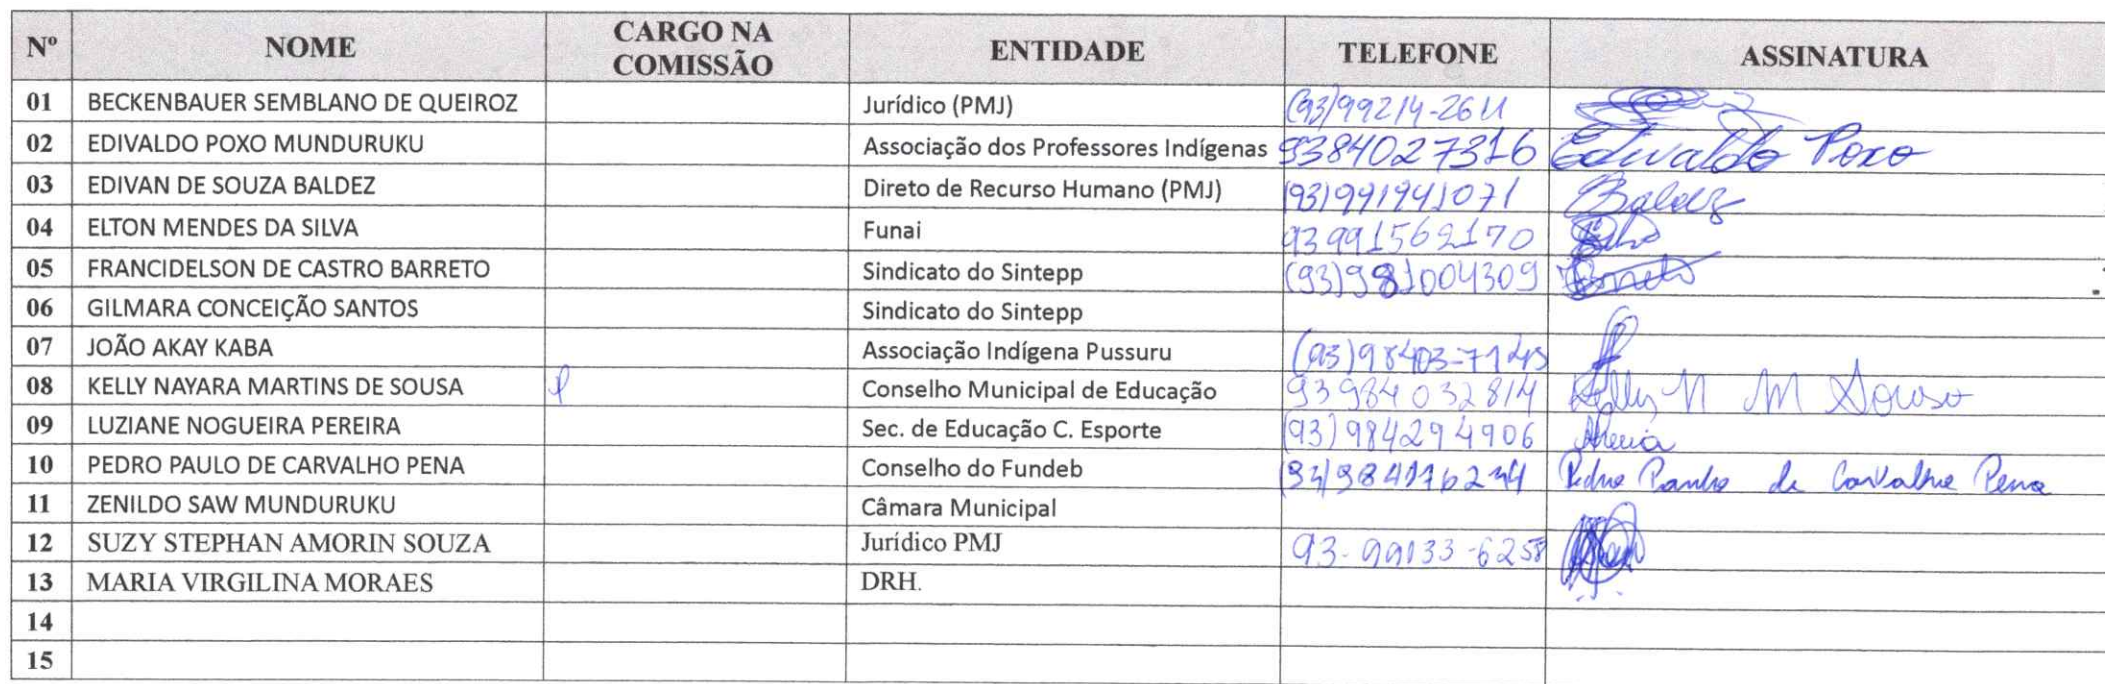 Nº NOME CARGO NA COMISSÃO ENTIDADE TELEFONE ASSINATURA
01 BECKENBAUER SEMBLANO DE QUEIROZ Jurídico (PMJ) (93)99214-2611
02 EDIVALDO POXO MUNDURUKU Associação dos Professores Indígenas 9384027316 Edivaldo Poxo
03 EDIVAN DE SOUZA BALDEZ Direto de Recurso Humano (PMJ) (93)991941071 Baldez
04 ELTON MENDES DA SILVA Funai 93 991562170
05 FRANCIDELSON DE CASTRO BARRETO Sindicato do Sintepp (93)981004309
06 GILMARA CONCEIÇÃO SANTOS Sindicato do Sintepp
07 JOÃO AKAY KABA Associação Indígena Pussuru
08 KELLY NAYARA MARTINS DE SOUSA Conselho Municipal de Educação 93984032814 Kelly N M Sousa
09 LUZIANE NOGUEIRA PEREIRA Sec. de Educação C. Esporte (93)984294906
10 PEDRO PAULO DE CARVALHO PENA Conselho do Fundeb Pedro Paulo de Carvalho Pena
11 ZENILDO SAW MUNDURUKU Câmara Municipal
12 SUZY STEPHAN AMORIN SOUZA Jurídico PMJ 93-99133-6258
13 MARIA VIRGILINA MORAES DRH.
14
15